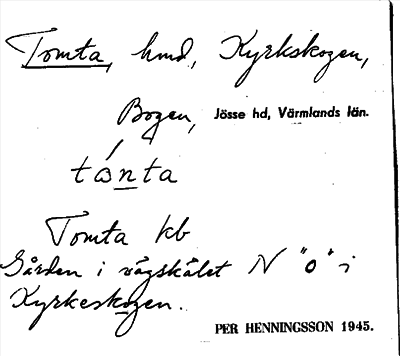 Tomta, hmd, Kyrkskogen,
Bogen, Jösse hd, Värmlands län.
tånta
Tomta kb
Gården i vägskälet N "o" i
Kyrkeskogen.
PER HENNINGSSON 1945.